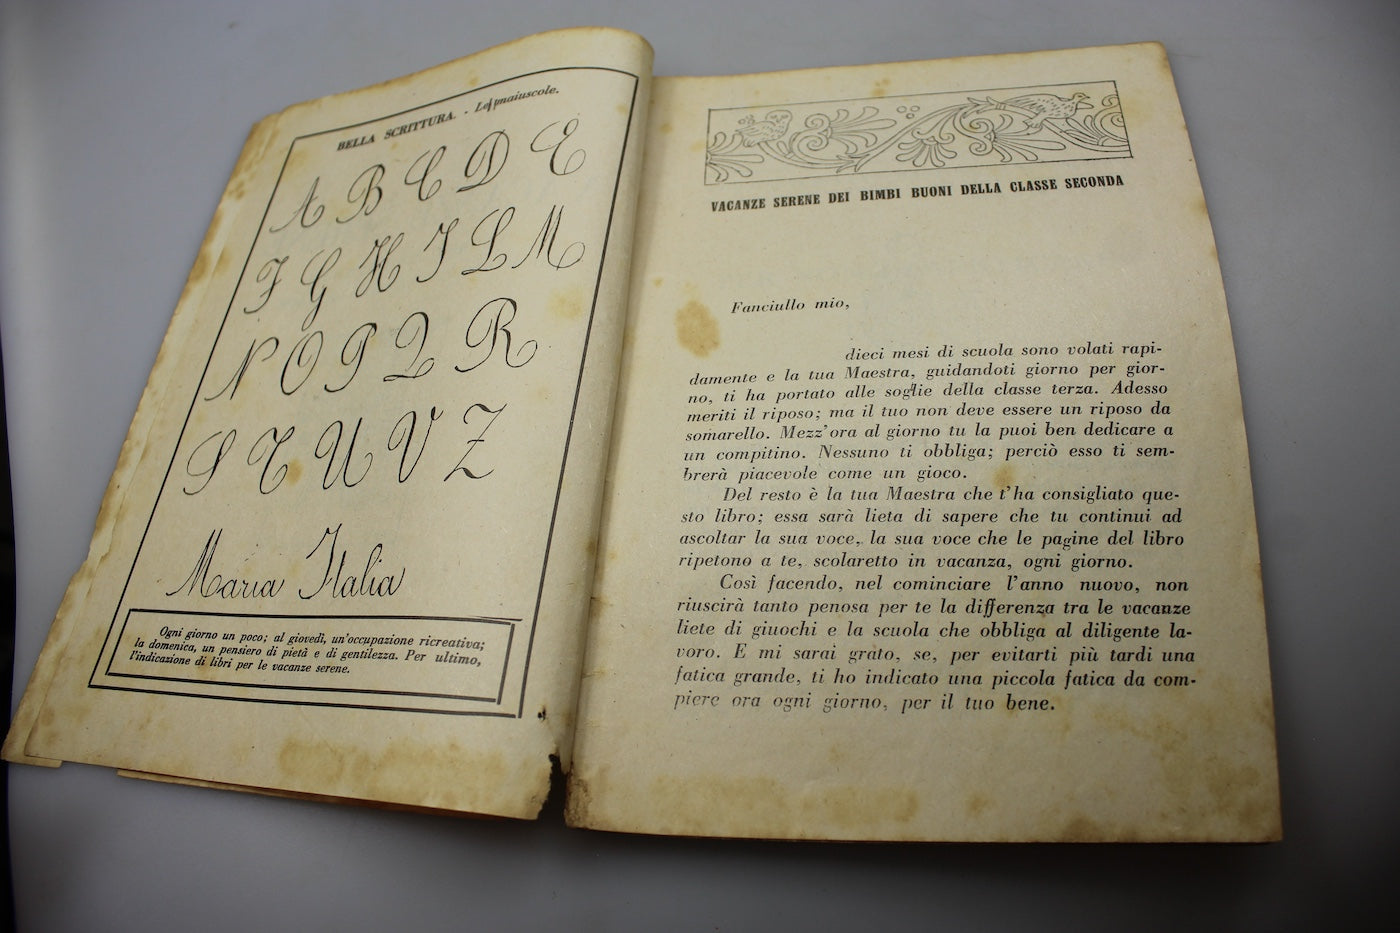 BELLA SCRITTURA. - Le maiuscole.
A B C D E
F G H I L M
N O P Q R
S T U V Z
Maria Italia
Ogni giorno un poco; al giovedì, un'occupazione ricreativa;
la domenica, un pensiero di pietà e di gentilezza. Per ultimo,
l'indicazione di libri per le vacanze serene.
VACANZE SERENE DEI BIMBI BUONI DELLA CLASSE SECONDA
Fanciullo mio,
dieci mesi di scuola sono volati rapi-
damente e la tua Maestra, guidandoti giorno per gior-
no, ti ha portato alle soglie della classe terza. Adesso
meriti il riposo; ma il tuo non deve essere un riposo da
somarello. Mezz'ora al giorno tu la puoi ben dedicare a
un compitino. Nessuno ti obbliga; perciò esso ti sem-
brerà piacevole come un gioco.
Del resto è la tua Maestra che t'ha consigliato que-
sto libro; essa sarà lieta di sapere che tu continui ad
ascoltar la sua voce, la sua voce che le pagine del libro
ripetono a te, scolaretto in vacanza, ogni giorno.
Così facendo, nel cominciare l'anno nuovo, non
riuscirà tanto penosa per te la differenza tra le vacanze
liete di giuochi e la scuola che obbliga al diligente la-
voro. E mi sarai grato, se, per evitarti più tardi una
fatica grande, ti ho indicato una piccola fatica da com-
piere ora ogni giorno, per il tuo bene.